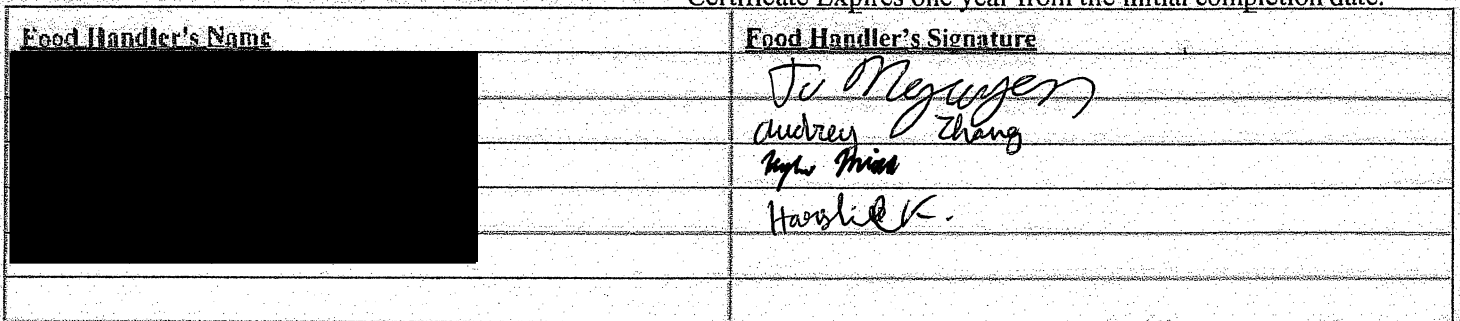 Certificate Expires one year from the initial completion date.
Food Handler's Name
Food Handler's Signature
Tu Nguyen
Audrey Zhang
Harshil K.